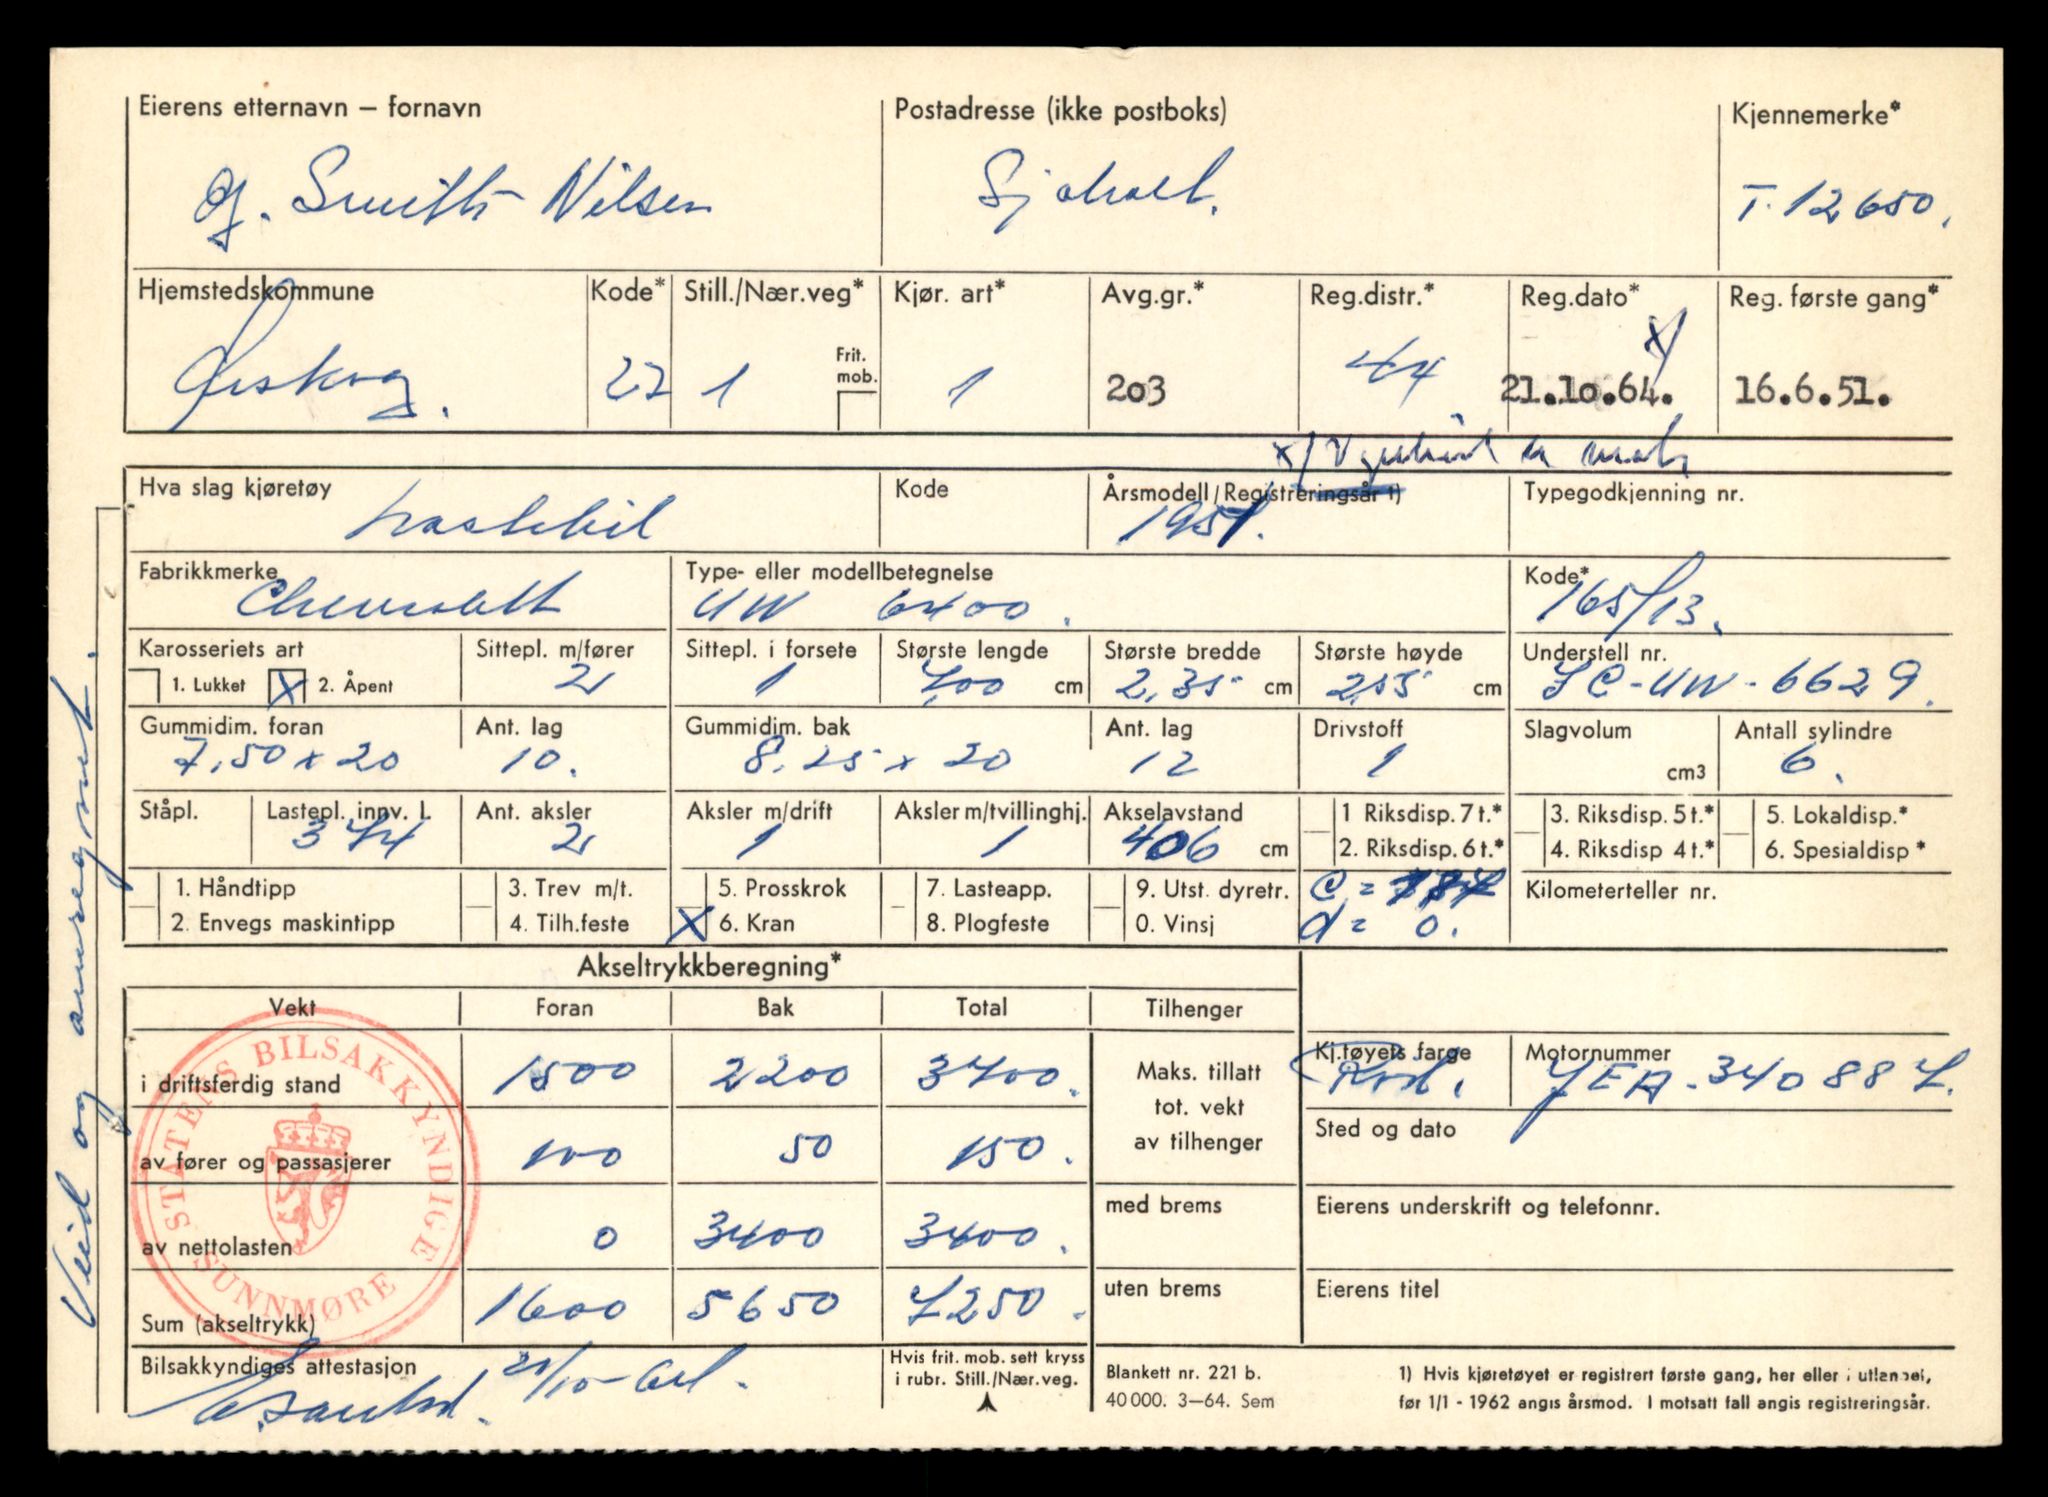 Eierens etternavn – fornavn Postadresse (ikke postboks) Kjennemerke*
Smith Nilsen Sjøholt. T-12650.
Hjemstedskommune Kode* Still./Nær.veg* Kjør. art* Avg.gr.* Reg.distr.* Reg.dato* Reg. første gang*
Frit. mob.
Ørskog. 27 1 1 203 44 21.10.64. x/ 16.6.51.
x/
Hva slag kjøretøy Kode Årsmodell/Registreringsår 1) Typegodkjenning nr.
Lastebil 1951.
Fabrikkmerke Type- eller modellbetegnelse Kode*
Chevrolett UW 6400. 165/13.
Karosseriets art Sittepl. m/fører Sittepl. i forsete Største lengde Største bredde Største høyde Understell nr.
1. Lukket X 2. Åpent 2 1 7,00 cm 2,35 cm 2,55 cm JC-UW-6629.
Gummidim. foran Ant. lag Gummidim. bak Ant. lag Drivstoff Slagvolum Antall sylindre
7,50 x 20 10. 8,25 x 20 12 1 cm3 6.
Ståpl. Lastepl. innv. l. Ant. aksler Aksler m/drift Aksler m/tvillinghj. Akselavstand 1 Riksdisp. 7 t.* 3. Riksdisp. 5 t.* 5. Lokaldisp.*
344 2 1 1 406 cm 2. Riksdisp. 6 t.* 4. Riksdisp 4 t.* 6. Spesialdisp *
1. Håndtipp 3. Trev m/t. 5. Prosskrok 7. Lasteapp. 9. Utst. dyretr. C = Kilometerteller nr.
2. Envegs maskintipp 4. Tilh.feste X 6. Kran 8. Plogfeste 0. Vinsj d = 0.
Akseltrykkberegning*
Vekt Foran Bak Total Tilhenger
i driftsferdig stand 1500 2200 3700. Maks. tillatt Kj.tøyets farge Motornummer
tot. vekt Rød. JEA-340887.
av tilhenger Sted og dato
av fører og passasjerer 100 50 150.
av nettolasten 0 3400 3400. med brems Eierens underskrift og telefonnr.
Sum (akseltrykk) 1600 5650 7250. uten brems Eierens titel
Bilsakkyndiges attestasjon 21/10-64. Hvis frit. mob. sett kryss Blankett nr. 221 b. 1) Hvis kjøretøyet er registrert første gang, her eller i utlandet,
i rubr. Still./Nær.veg. 40 000. 3–64. Sem før 1/1 - 1962 angis årsmod. I motsatt fall angis registreringsår.
STATENS BILSAKKYNDIGE
SUNNMØRE
Veid og omregnet.